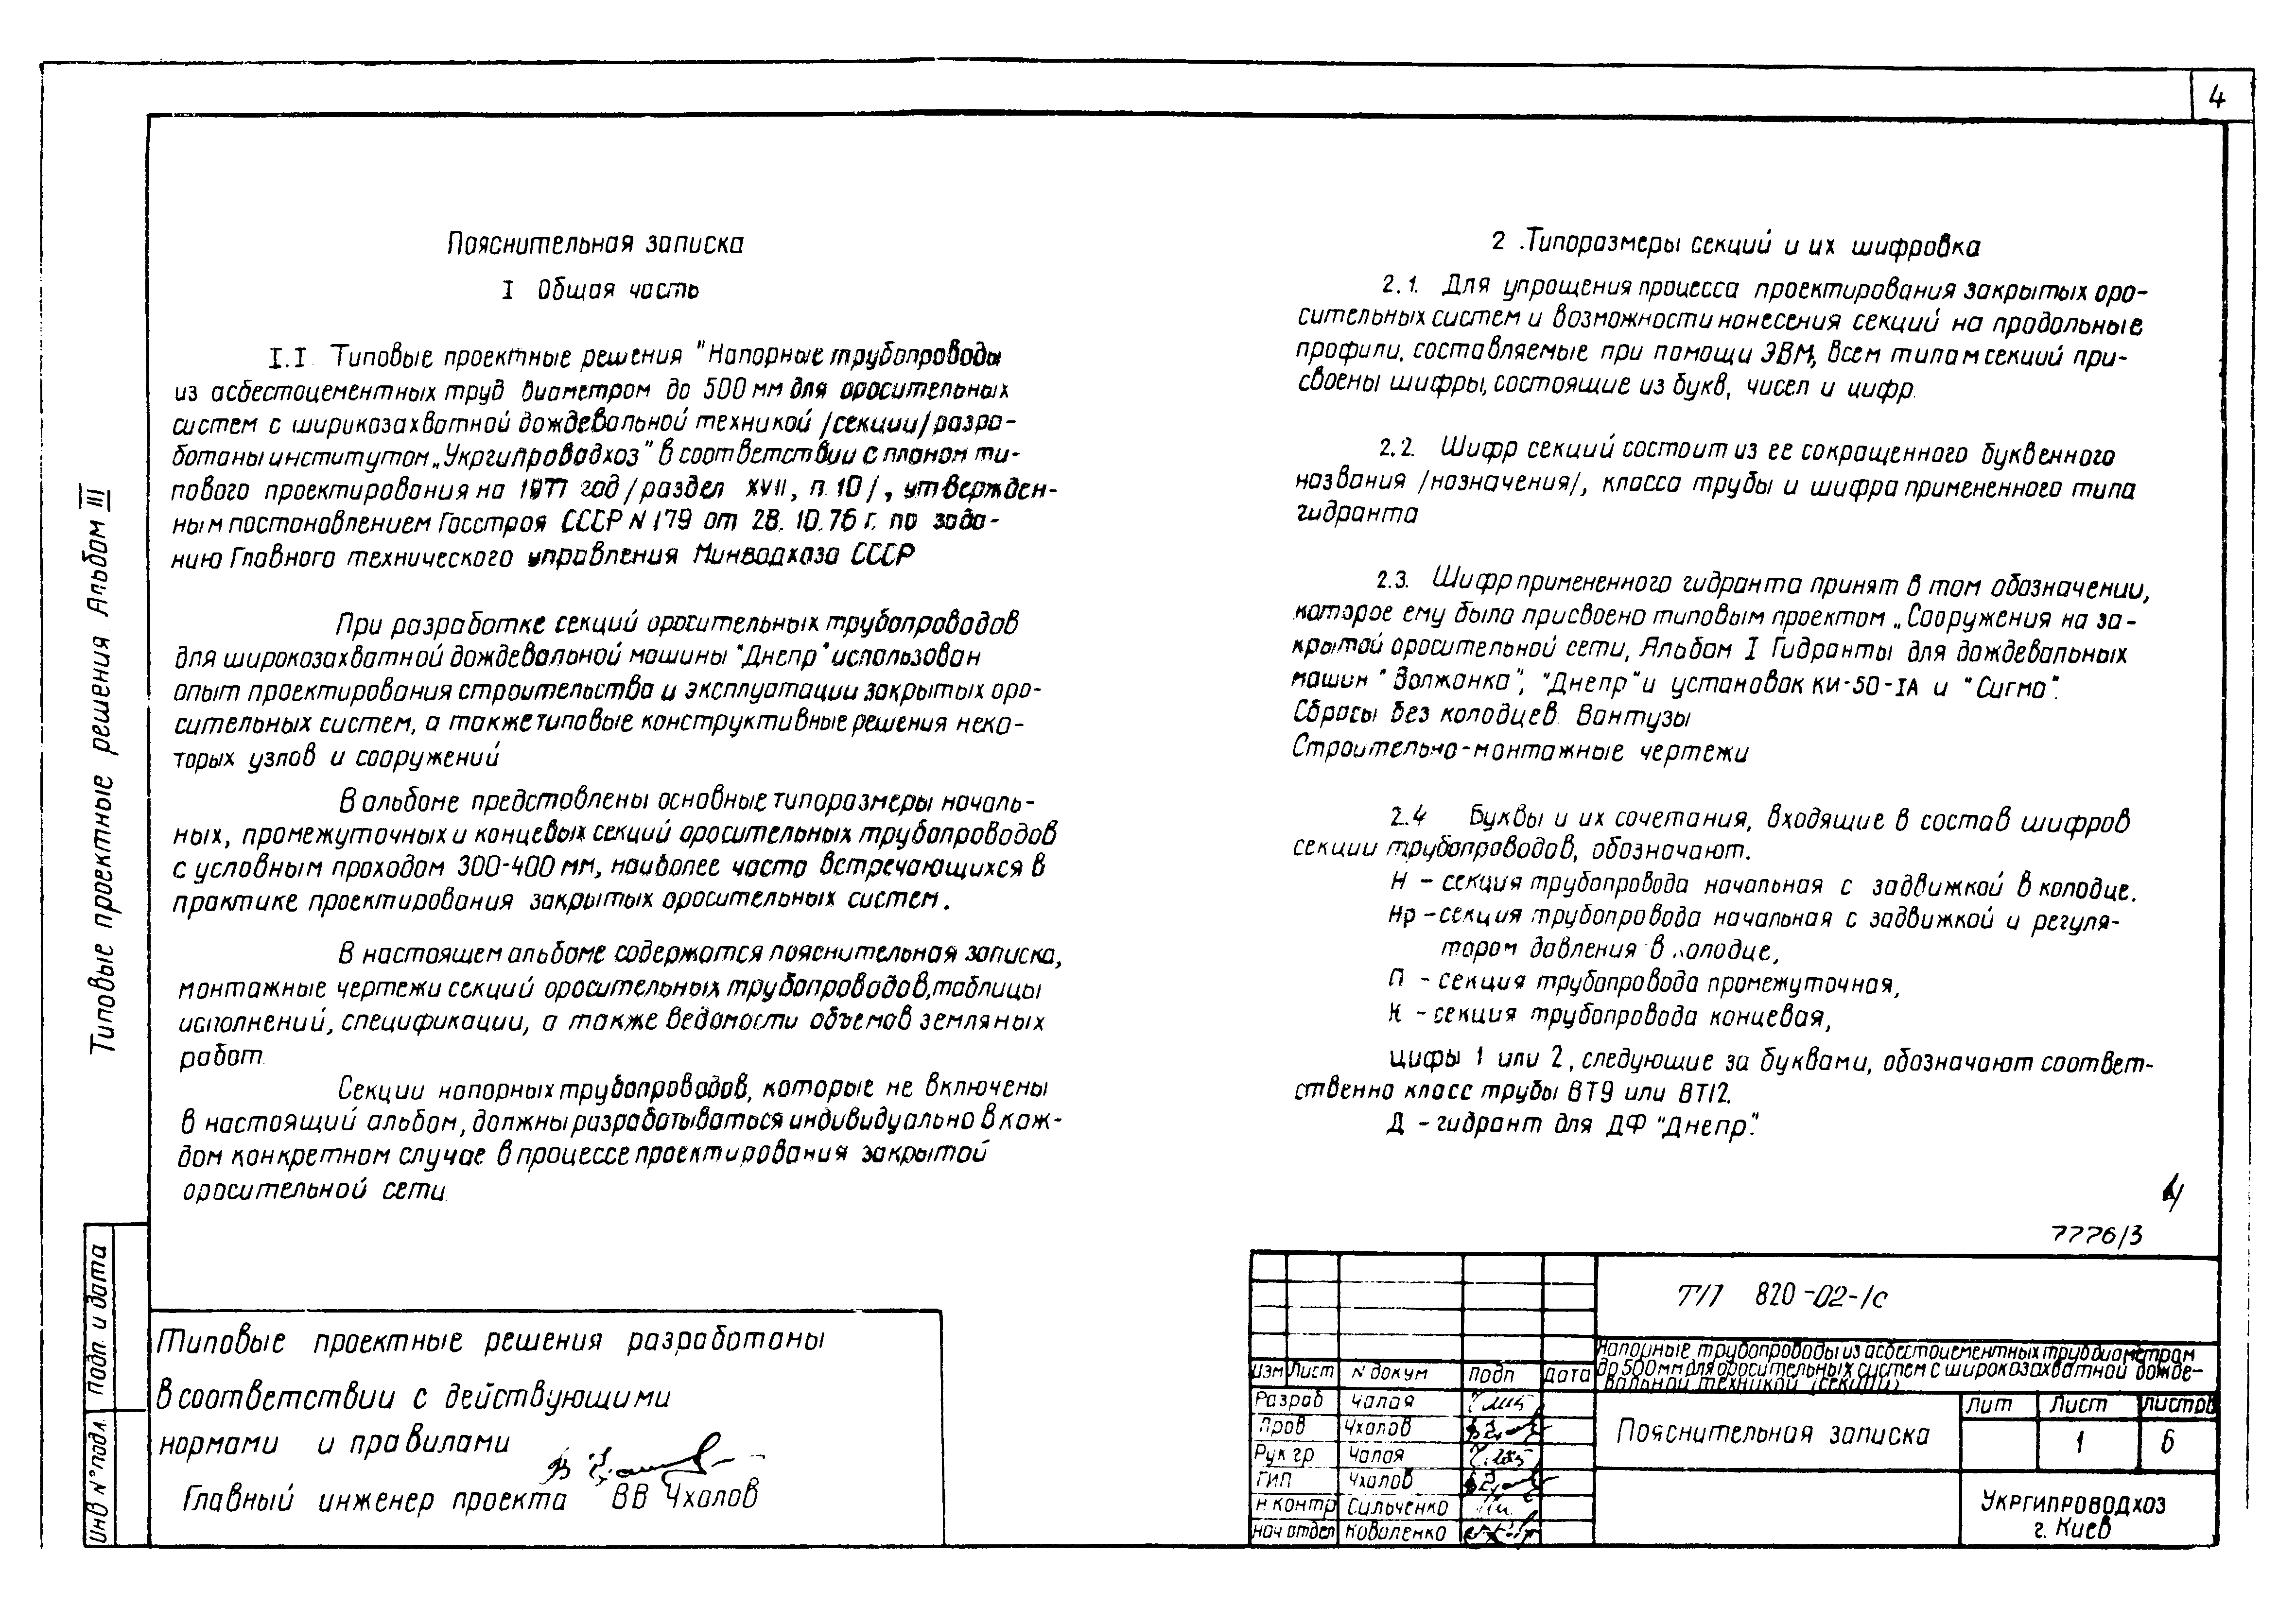 4
Типовые проектные решения Альбом III
Пояснительная записка
I Общая часть
I.I Типовые проектные решения "Напорные трубопроводы
из асбестоцементных труб диаметром до 500 мм для оросительных
систем с ширикозахватной дождевальной техникой /секции/ разра-
ботаны институтом „Укргипроводхоз" в соответствии с планом ти-
пового проектирования на 1977 год /раздел XVII, п. 10/, утвержден-
ным постановлением Госстроя СССР N 179 от 28. 10. 76 г. по зада-
нию Главного технического управления Минводхоза СССР
При разработке секций оросительных трубопроводов
для широкозахватной дождевальной машины "Днепр" использован
опыт проектирования строительства и эксплуатации закрытых оро-
сительных систем, а также типовые конструктивные решения неко-
торых узлов и сооружений
В альбоме представлены основные типоразмеры началь-
ных, промежуточных и концевых секций оросительных трубопроводов
с условным проходом 300-400 мм, наиболее часто встречающихся в
практике проектирования закрытых оросительных систем.
В настоящем альбоме содержатся пояснительная записка,
монтажные чертежи секций оросительных трубопроводов, таблицы
исполнений, спецификации, а также ведомости объемов земляных
работ.
Секции напорных трубопроводов, которые не включены
в настоящий альбом, должны разрабатываться индивидуально в каж-
дом конкретном случае в процессе проектирования закрытой
оросительной сети
2 .Типоразмеры секций и их шифровка
2.1. Для упрощения процесса проектирования закрытых оро-
сительных систем и возможности нанесения секций на продольные
профили, составляемые при помощи ЭВМ, всем типам секций при-
своены шифры, состоящие из букв, чисел и цифр.
2.2. Шифр секций состоит из ее сокращенного буквенного
названия /назначения/, класса трубы и шифра примененного типа
гидранта
2.3. Шифр примененного гидранта принят в том обозначении,
которое ему было присвоено типовым проектом „Сооружения на за-
крытой оросительной сети, Альбом I Гидранты для дождевальных
машин "Волжанка", "Днепр" и установок КИ-50-IА и "Сигма".
Сбросы без колодцев. Вантузы
Строительно-монтажные чертежи
2.4 Буквы и их сочетания, входящие в состав шифров
секции трубопроводов, обозначают.
Н - секция трубопровода начальная с задвижкой в колодце.
Нр - секция трубопровода начальная с задвижкой и регуля-
тором давления в колодце,
П - секция трубопровода промежуточная,
К - секция трубопровода концевая,
цифры 1 или 2, следующие за буквами, обозначают соответ-
ственно класс трубы ВТ9 или ВТ12.
Д - гидрант для ДФ "Днепр".
4
7776/3
Типовые проектные решения разработаны
в соответствии с действующими
нормами и правилами
Главный инженер проекта ВВ Чхалов
Инв N° подл. Подп. и дата
ТП 820-02-1с
Напорные трубопроводы из асбестоцементных труб диаметрам
до 500 мм для оросительных систем с широкозахватной дожде-
вальной техникой (секции)
Изм Лист N докум Подп Дата
Разраб Чалая
Пров Чхалов
Рук гр Чалая
ГИП Чхалов
Н контр Сильченко
Нач отдел Коваленко
Пояснительная записка
Лит Лист Листов
1 6
Укргипроводхоз
г. Киев